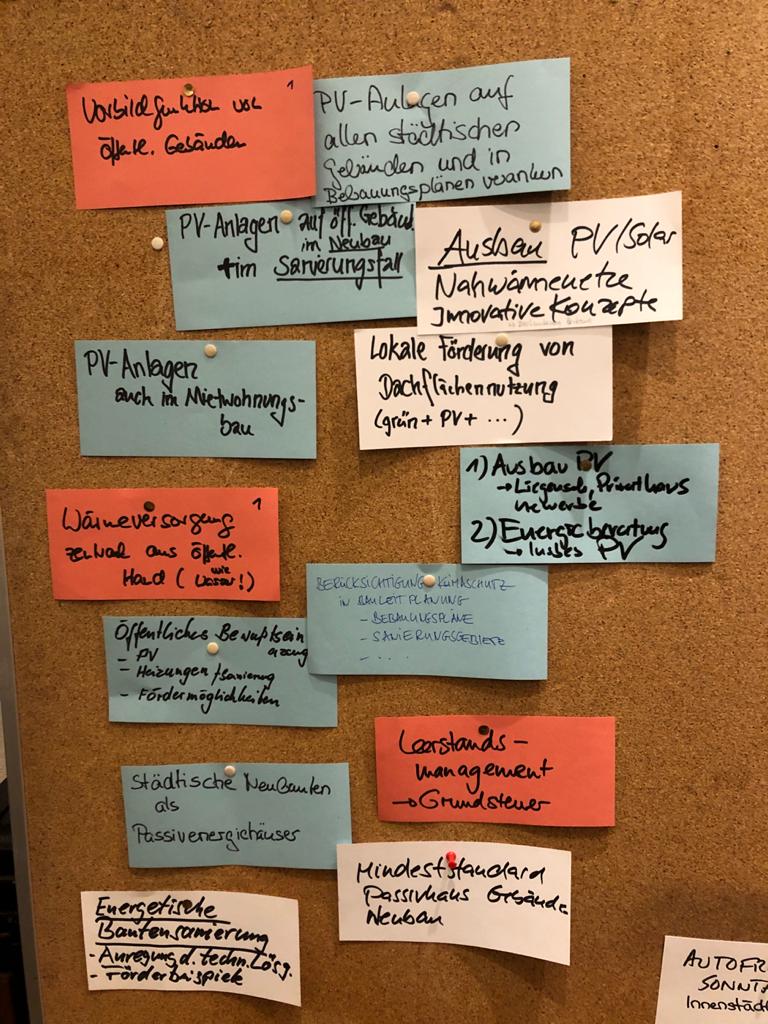 Vorbildfunktion von
öffentl. Gebäuden
1
PV-Anlagen auf
allen städtischen
Gebäuden und in
Bebauungsplänen verankern
PV-Anlagen auf öff. Gebäud
im Neubau
+ im Sanierungsfall
Ausbau PV/Solar
Nahwärmenetze
Innovative Konzepte
PV-Anlagen
auch im Mietwohnungs-
bau
Lokale Förderung von
Dachflächennutzung
(grün + PV + ...)
1) Ausbau PV
→ Liegensch, Privathaus
2) Energieberatung
PV
Wärmeversorgung
1
zentral aus öffentl.
Hand (wie Wasser!)
BERÜCKSICHTIGUNG KLIMASCHUTZ
IN BAULEITPLANUNG
- BEBAUUNGSPLÄNE
- SANIERUNGSGEBIETE
- ....
Öffentliches Bewußtsein
- PV
- Heizungen/sanierung
- Fördermöglichkeiten
Leerstands-
management
→ Grundsteuer
Städtische Neubauten
als
Passivenergiehäuser
Mindeststandard
Passivhaus Gebäude
Neubau
Energetische
Bautensanierung
- Anregung d. techn. Lösg.
- Förderbeispiele
AUTOFR
SONNTA
Innenstadt